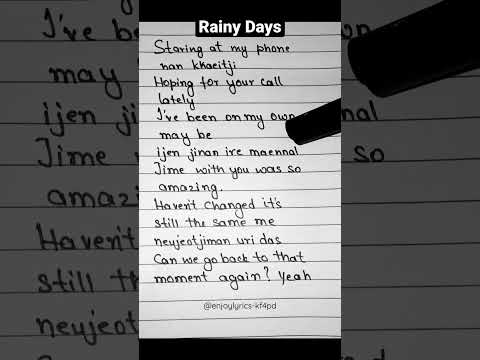 Rainy Days
Staring at my phone
nan khaeitji
Hoping for your call
lately
I've been on my own
may be
ijen jinan ire maennal
Time with you was so
amazing.
Haven't changed it's
still the same me
neujeotjiman uri das
Can we go back to that
moment again? Yeah
@enjoylyrics-kf4pd